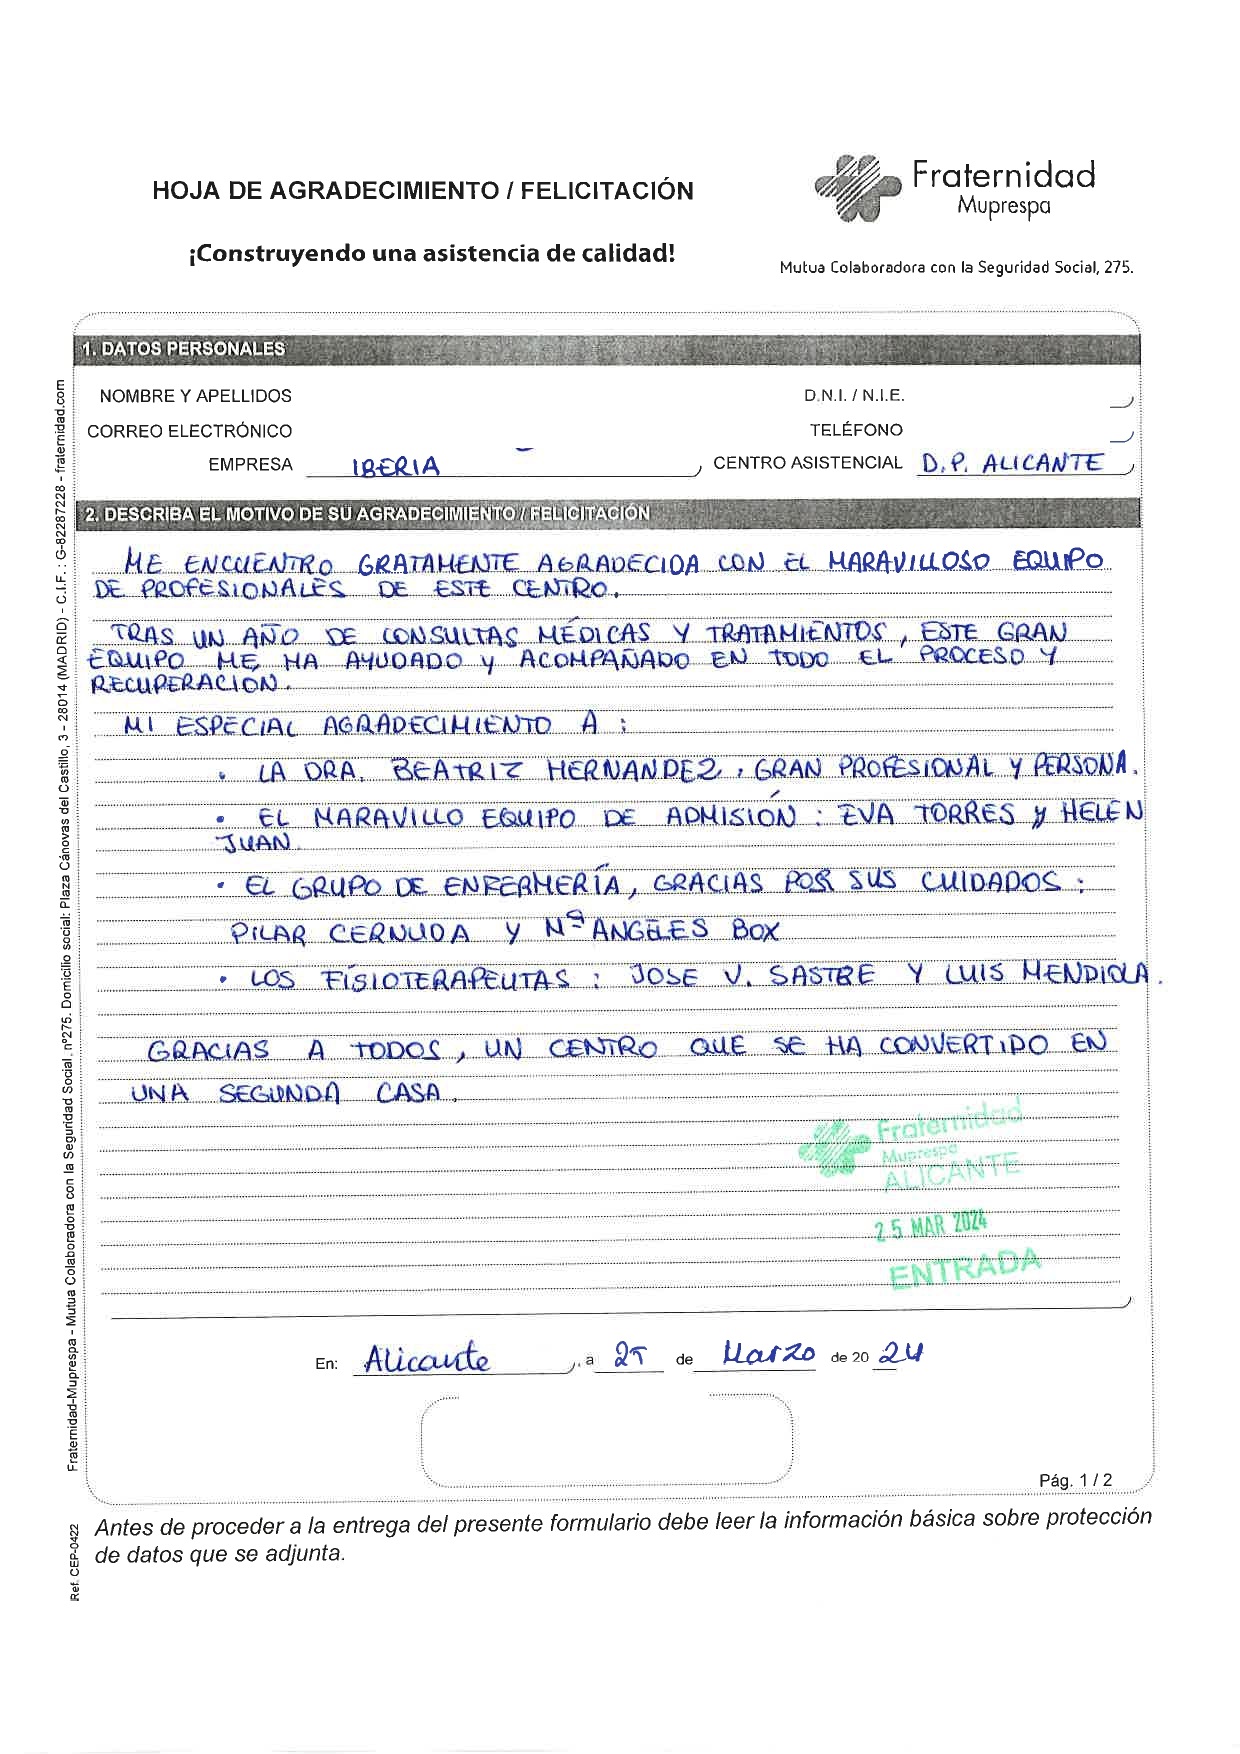 HOJA DE AGRADECIMIENTO / FELICITACIÓN
¡Construyendo una asistencia de calidad!
Fraternidad
Muprespa
Mutua Colaboradora con la Seguridad Social, 275.
1. DATOS PERSONALES
NOMBRE Y APELLIDOS
D.N.I. / N.I.E.
CORREO ELECTRÓNICO
TELÉFONO
EMPRESA IBERIA CENTRO ASISTENCIAL D.P. ALICANTE
2. DESCRIBA EL MOTIVO DE SU AGRADECIMIENTO / FELICITACIÓN
ME ENCUENTRO GRATAMENTE AGRADECIDA CON EL MARAVILLOSO EQUIPO
DE PROFESIONALES DE ESTE CENTRO.
TRAS UN AÑO DE CONSULTAS MÉDICAS Y TRATAMIENTOS, ESTE GRAN
EQUIPO ME HA AYUDADO Y ACOMPAÑADO EN TODO EL PROCESO Y
RECUPERACION.
MI ESPECIAL AGRADECIMIENTO A :
• LA DRA. BEATRIZ HERNANDEZ, GRAN PROFESIONAL Y PERSONA.
• EL MARAVILLO EQUIPO DE ADMISIÓN : EVA TORRES Y HELEN
JUAN.
• EL GRUPO DE ENFERMERÍA, GRACIAS POR SUS CUIDADOS :
PILAR CERNUDA Y Mª ANGELES BOX
• LOS FISIOTERAPEUTAS : JOSE V. SASTRE Y LUIS MENDIOLA.
GRACIAS A TODOS, UN CENTRO QUE SE HA CONVERTIDO EN
UNA SEGUNDA CASA.
Fraternidad
Muprespa
ALICANTE
25 MAR 2024
ENTRADA
En: Alicante, a 25 de Marzo de 20 24
Pág. 1 / 2
Antes de proceder a la entrega del presente formulario debe leer la información básica sobre protección
de datos que se adjunta.
Fraternidad-Muprespa - Mutua Colaboradora con la Seguridad Social, nº275. Domicilio social: Plaza Cánovas del Castillo, 3 - 28014 (MADRID) - C.I.F. : G-82287228 - fraternidad.com
Ref. CEP-0422